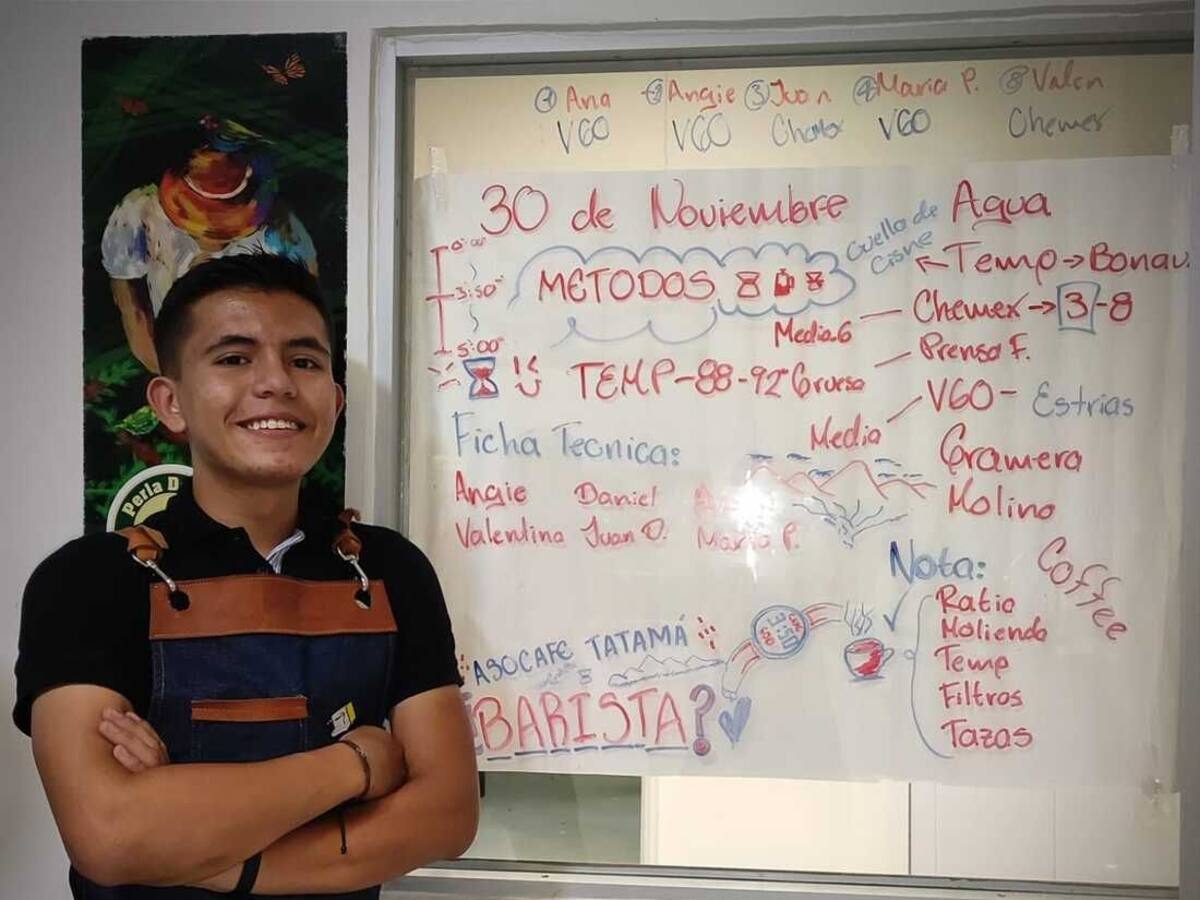 ① Ana ② Angie ③ Juan ④ Maria P. ⑤ Valen
V60 V60 Chemex V60 Chemex
30 de Noviembre
0:00"
3:50"
5:00"
METODOS
TEMP-88-92°
Cuello de
Cisne
Agua
Temp → Bonav.
Media.6 — Chemex → 3-8
Gruesa — Prensa F.
Media — V60 - Estrias
Gramera
Molino
Ficha Tecnica:
Angie Daniel
Valentina Juan D. Maria P.
Nota:
Ratio
Molienda
Temp
Filtros
Tazas
Coffee
ASOCAFE TATAMÁ
BARISTA?
3:50
Perla D